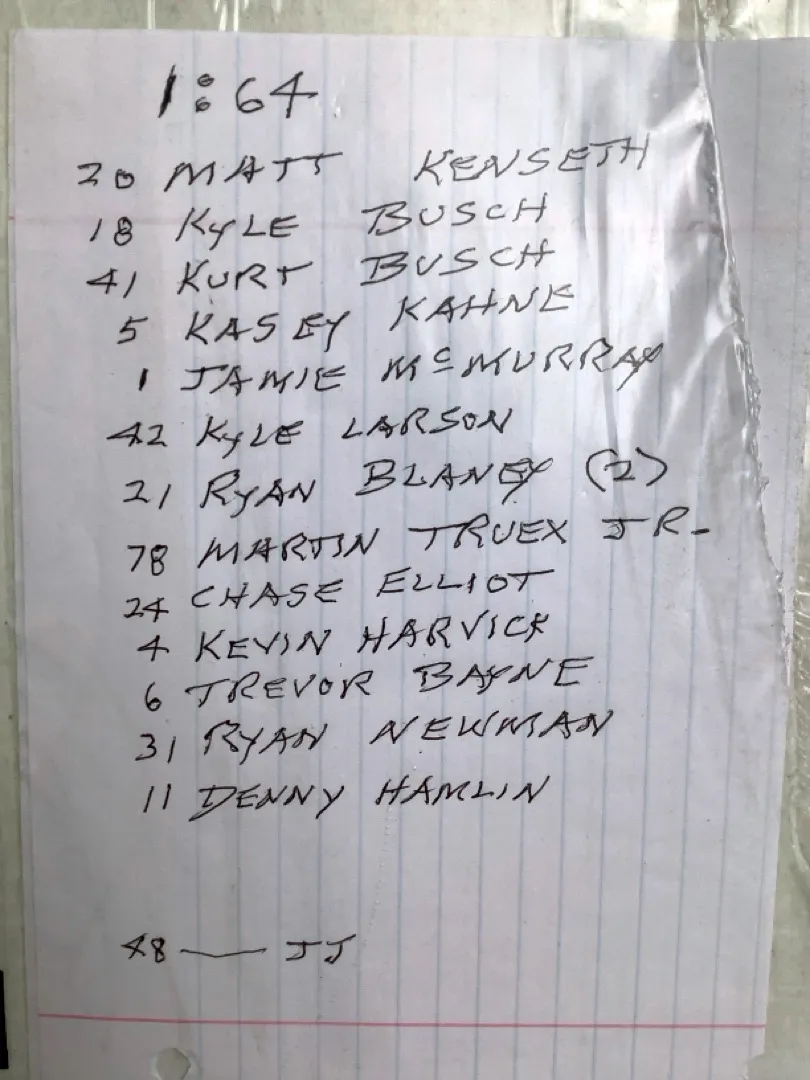 1:64
20 MATT KENSETH
18 KYLE BUSCH
41 KURT BUSCH
5 KASEY KAHNE
1 JAMIE McMURRAY
42 KYLE LARSON
21 RYAN BLANEY (2)
78 MARTIN TRUEX JR-
24 CHASE ELLIOT
4 KEVIN HARVICK
6 TREVOR BAYNE
31 RYAN NEWMAN
11 DENNY HAMLIN
48 — JJ